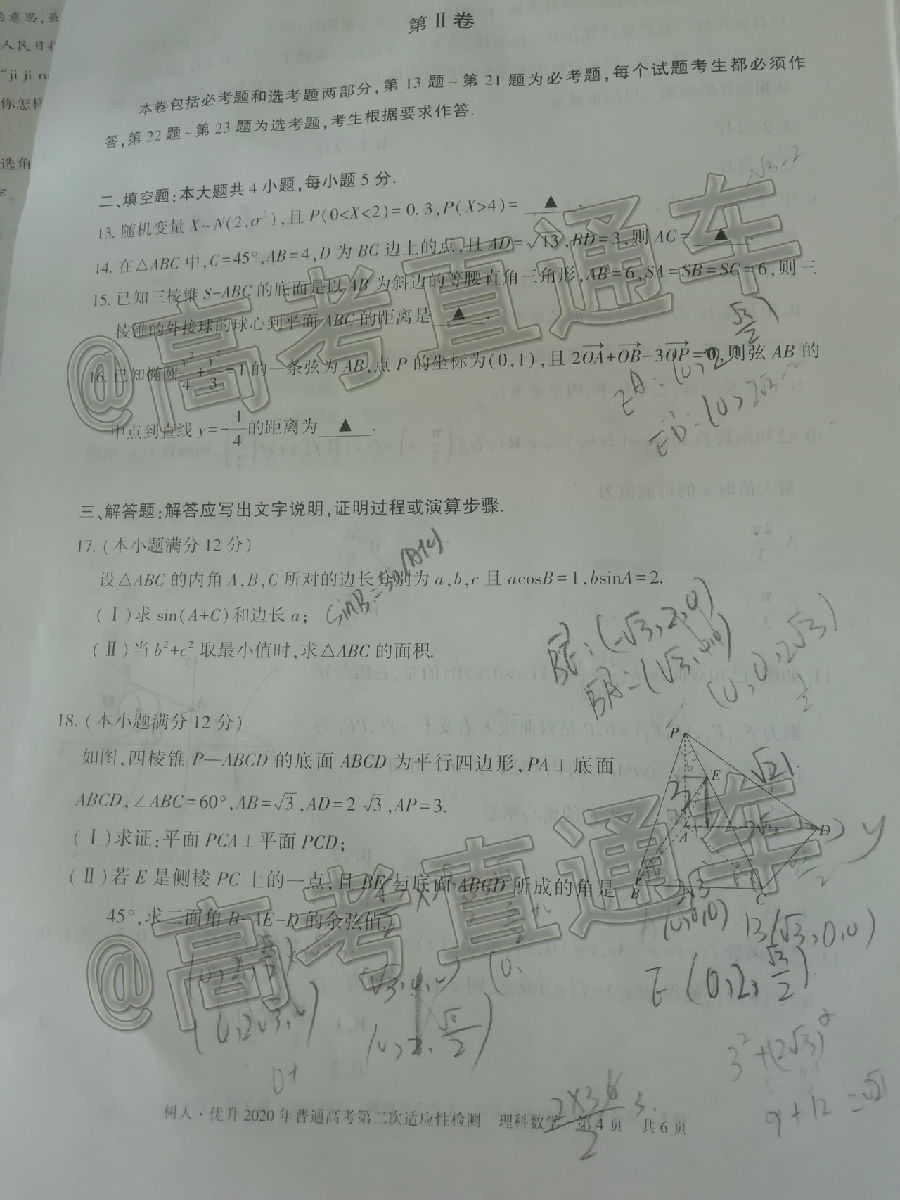 第Ⅱ卷
本卷包括必考题和选考题两部分,第13题~第21题为必考题,每个试题考生都必须作
答,第22题~第23题为选考题,考生根据要求作答.
二、填空题:本大题共4小题,每小题5分.
13. 随机变量X~N(2,σ²),且P(0<X<2)=0.3,P(X>4)= ▲ .
14. 在△ABC中,C=45°,AB=4,D为BC边上的点,且AD=√13,BD=3,则AC= ▲ .
15. 已知三棱锥S-ABC的底面是以AB为斜边的等腰直角三角形,AB=6,SA=SB=SC=6,则三
棱锥的外接球的球心到平面ABC的距离是 ▲ .
16. 已知椭圆x²/4+y²/3=1的一条弦为AB,点P的坐标为(0,1),且2OA+OB-3OP=0,则弦AB的
中点到直线y=-1/4的距离为 ▲ .
三、解答题:解答应写出文字说明,证明过程或演算步骤.
17. (本小题满分12分)
设△ABC的内角A,B,C所对的边长分别为a,b,c且acosB=1,bsinA=2.
(Ⅰ)求sin(A+C)和边长a;
(Ⅱ)当b²+c²取最小值时,求△ABC的面积.
BE:(-√3,2,0)
18. (本小题满分12分)
如图,四棱锥P—ABCD的底面ABCD为平行四边形,PA⊥底面
ABCD,∠ABC=60°,AB=√3,AD=2√3,AP=3.
(Ⅰ)求证:平面PCA⊥平面PCD;
(Ⅱ)若E是侧棱PC上的一点,且BE与底面ABCD所成的角是
45°,求二面角B-AE-D的余弦值.
P
E
√21
A
D
y
B
C
(0,0,0)
B(√3,0,0)
E(0,2,√3/2)
(0,2√3,0)
3²+(2√3)²
9+12=√21
@高考直通车
@高考直通车
树人·优升2020年普通高考第二次适应性检测 理科数学 第4页 共6页